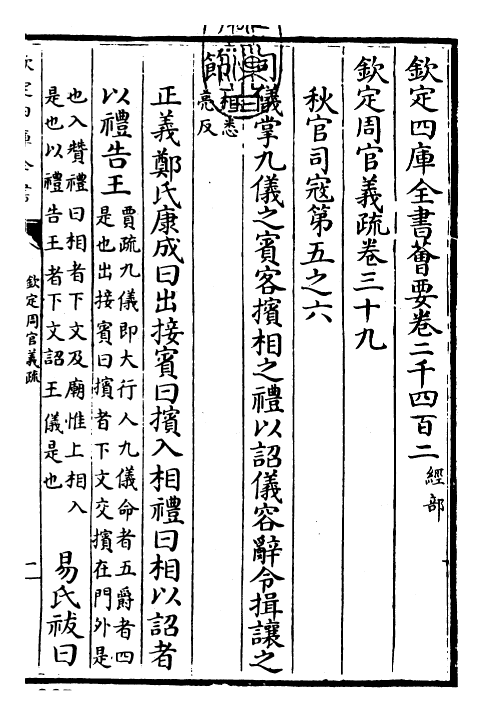 欽定四庫全書薈要卷二千四百二 經部
欽定周官義疏卷三十九
秋官司寇第五之六
司儀掌九儀之賓客擯相之禮以詔儀容辭令揖讓之
節 相悉
亮反
正義鄭氏康成曰出接賓曰擯入相禮曰相以詔者
以禮告王 賈疏九儀即大行人九儀命者五爵者四
是也出接賓曰擯者下文交擯在門外是
也入贊禮曰相者下文及廟惟上相入
是也以禮告王者下文詔王儀是也 易氏祓曰
欽定周官義疏